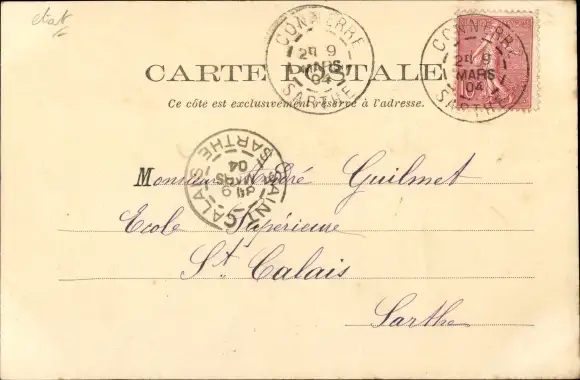 CONNERRÉ
2E 9
MARS
04
SARTHE
CONNERRÉ
2E 9
MARS
04
SARTHE
CARTE POSTALE
Ce côté est exclusivement réservé à l'adresse.
SAINT CALAIS
9
MARS
04
SARTHE
Monsieur André Guilmet
Ecole Supérieure
St Calais
Sarthe